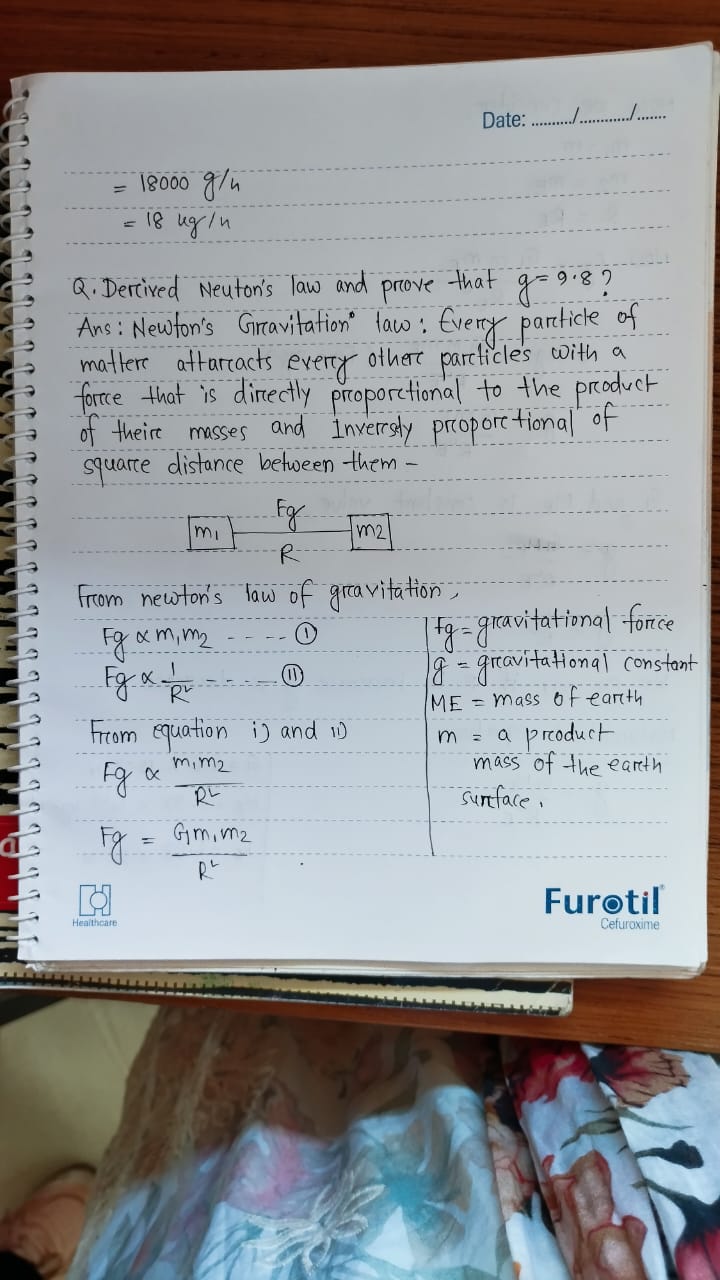 Date: ........../............/.......
= 18000 g/h
= 18 kg/h
Q. Derived Neuton's law and prove that g = 9.8?
Ans: Newton's Gravitation law: Every particle of
matter attaracts every other particles with a
force that is directly proportional to the product
of their masses and Inversly proportional of
square distance between them –
Fg
m1 m2
R
From newton's law of gravitation,
Fg ∝ m1m2 - - - - - (I)
Fg ∝ 1/R² - - - - - (II)
From equation i) and ii)
Fg ∝ m1m2/R²
Fg = Gm1m2/R²
Fg = gravitational force
g = gravitational constant
ME = mass of earth
m = a product
mass of the earth
surface.
Healthcare
Furotil
Cefuroxime